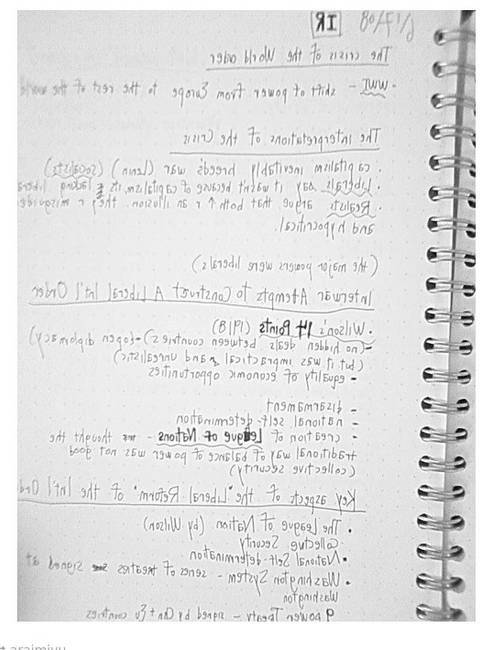 IR
The crisis of the World order
- WWI - shift of power from Europe to the rest of the world
The interpretations of the Crisis
• capitalism inevitably breeds war (Lenin) (socialists)
• Liberals say it wasn't because of capitalism, its lacking
• Realists argue that both ↑ r an illusion. they r
and hypocritical.
(the major powers were liberals)
Interwar Attempts To Construct A Liberal Int'l Order
• Wilson's 14 Points (1918)
-(no hidden deals between countries)-(open diplomacy)
(but it was impractical and unrealistic)
- equality of economic opportunities
- disarmament
- national self-determination
- creation of League of Nations - thought the
traditional way of balance of power was not good
(collective security)
Key aspects of the "Liberal Reform" of the Int'l Ord
• The League of Nation (by Wilson)
-Collective Security
•National Self-determination
• Washington System - series of treaties signed at
Washington
9 power Treaty - signed by